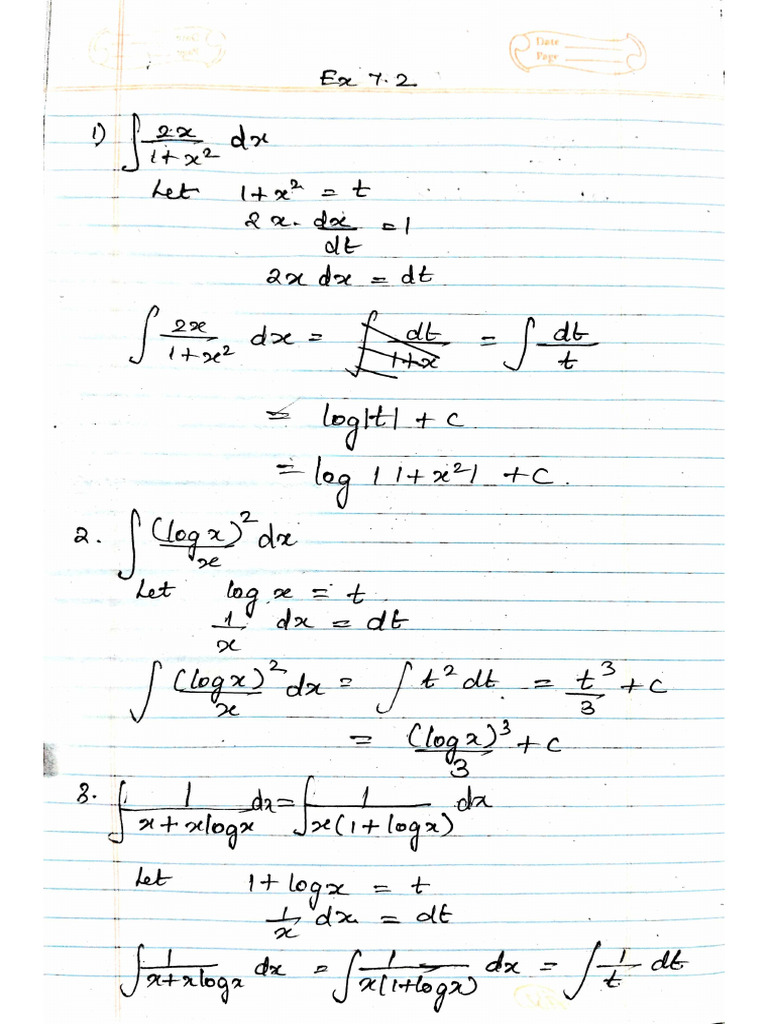 Date
Page
Ex 7.2
1) ∫ 2x/(1+x²) dx
Let 1+x² = t
2x. dx/dt = 1
2x dx = dt
∫ 2x/(1+x²) dx = ∫ dt/(1+x) = ∫ dt/t
= log|t| + c
= log |1+x²| + c.
2. ∫ (log x)²/x dx
Let log x = t
1/x dx = dt
∫ (log x)²/x dx = ∫ t² dt = t³/3 + c
= (log x)³/3 + c
3. ∫ 1/(x+xlogx) dx = ∫ 1/(x(1+logx)) dx
Let 1+logx = t
1/x dx = dt
∫ 1/(x+xlogx) dx = ∫ 1/(x(1+logx)) dx = ∫ 1/t dt